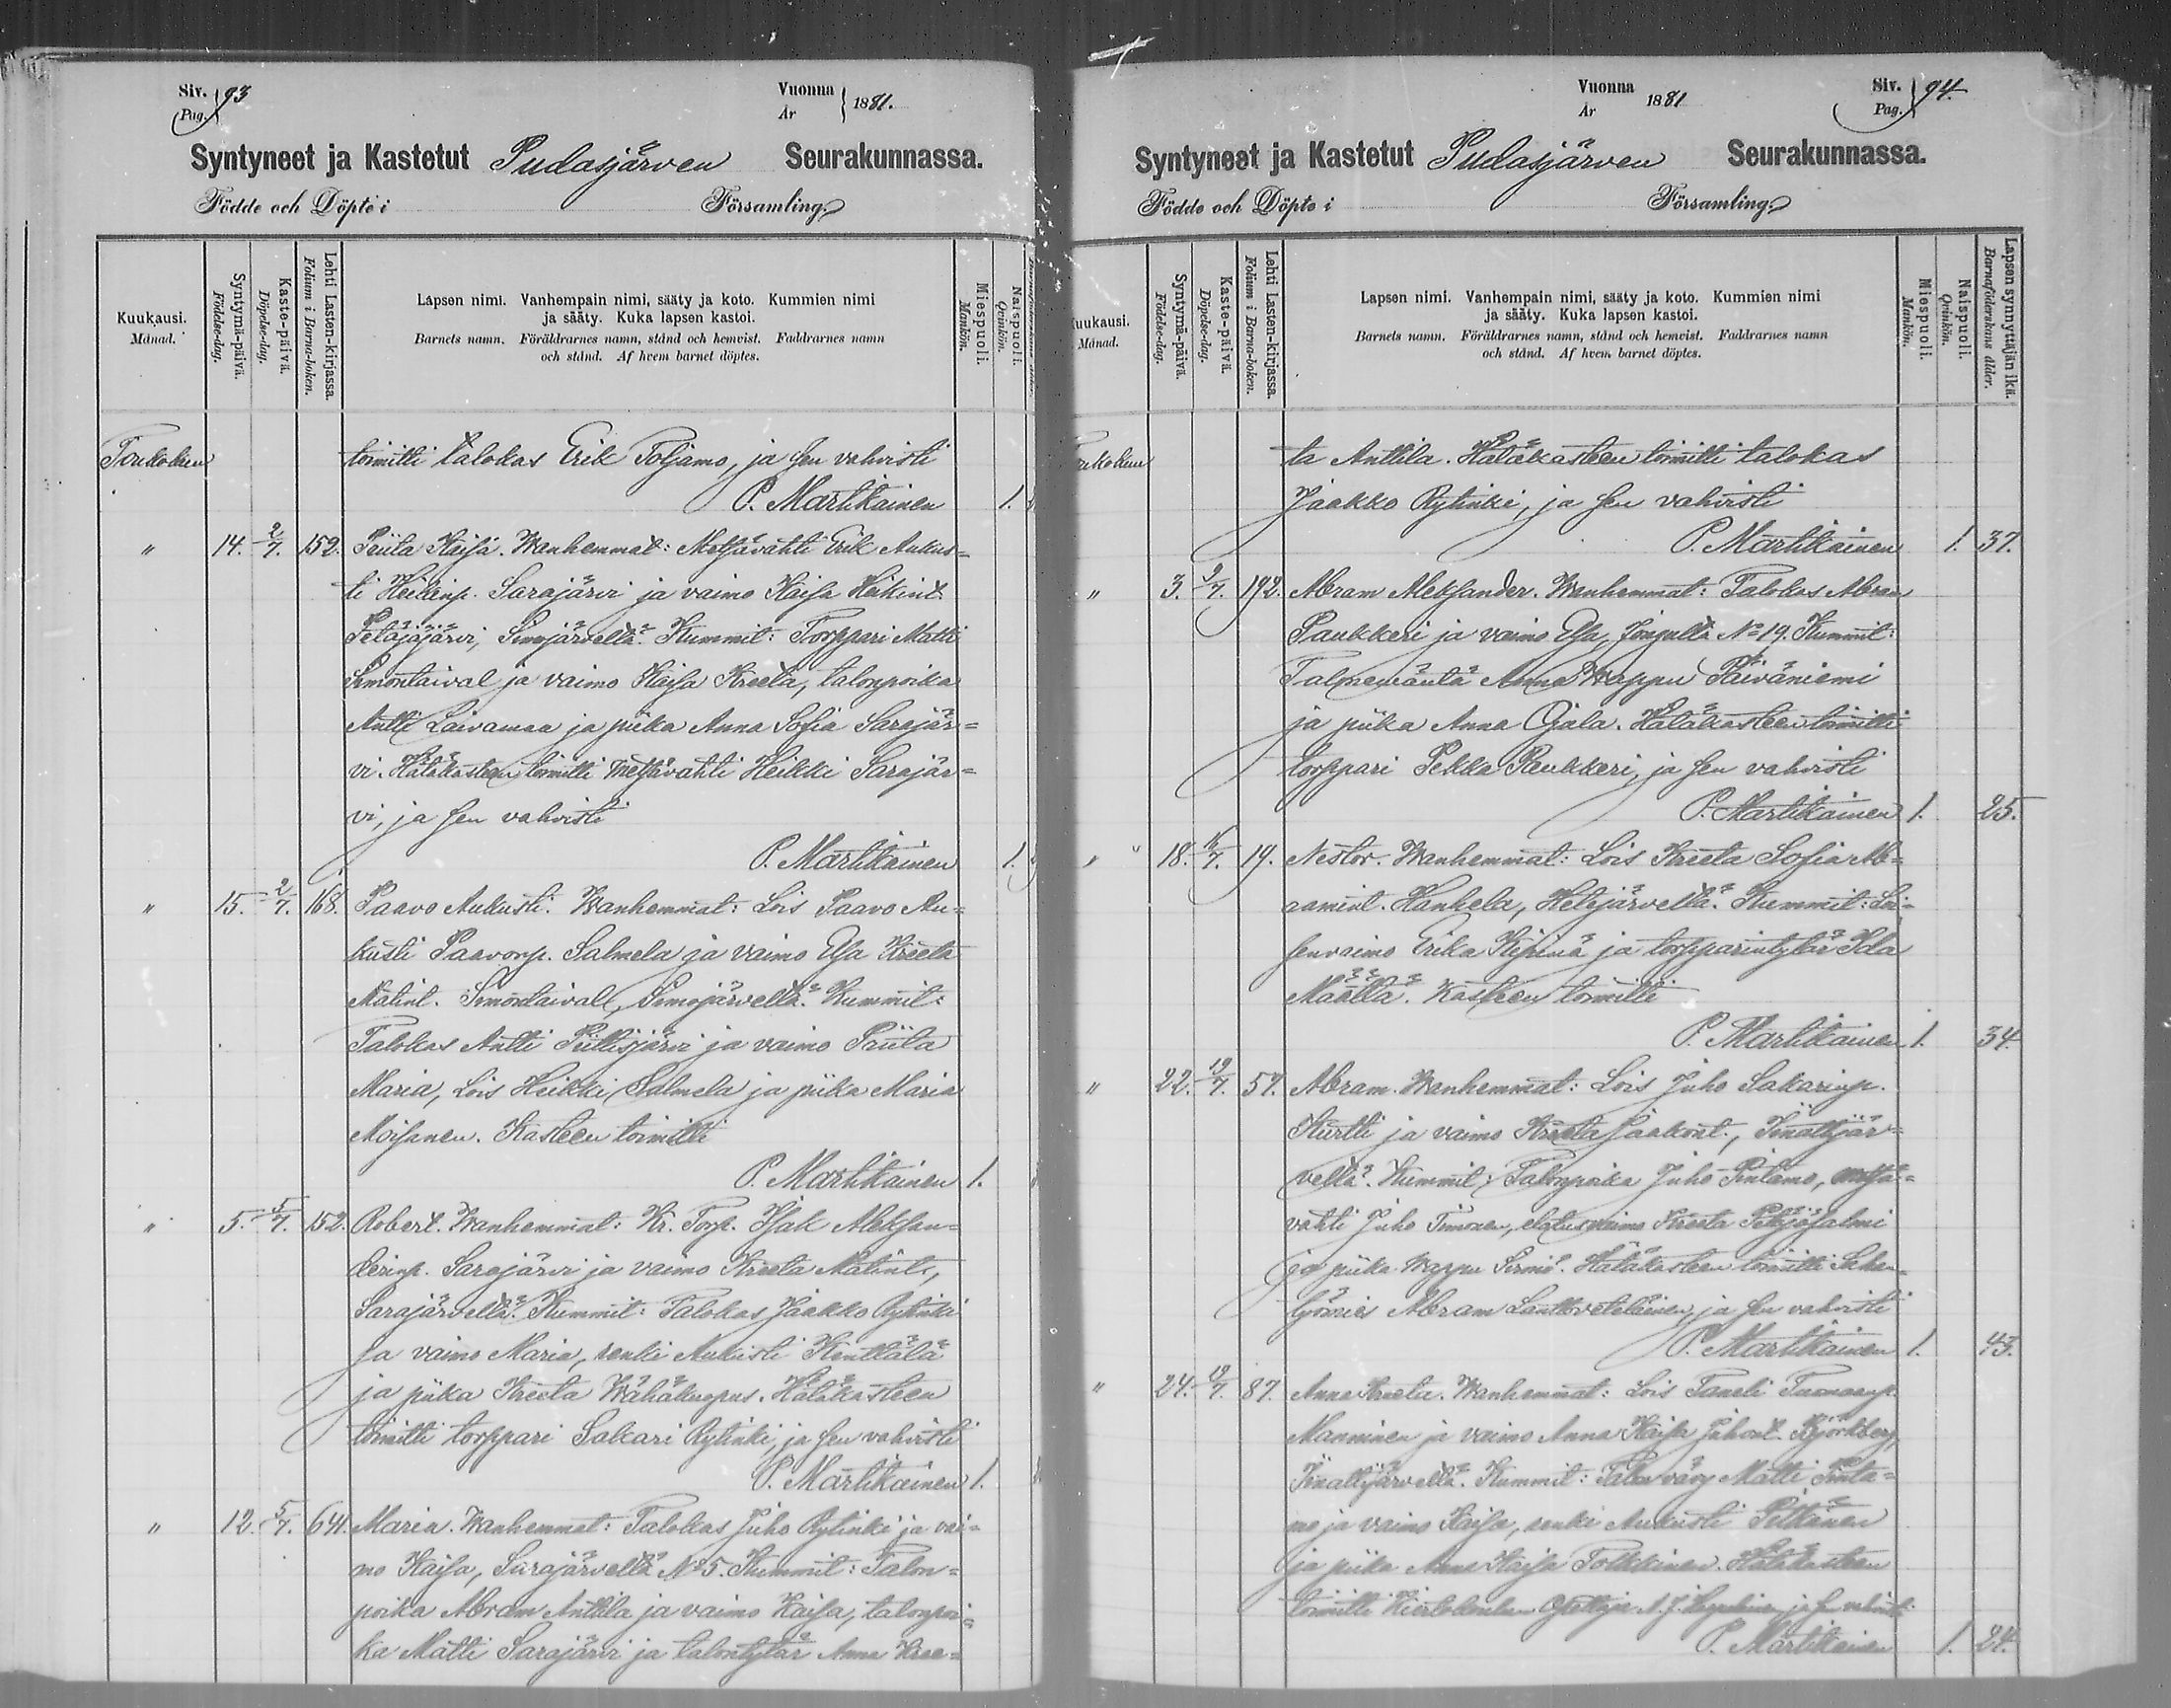 Siv. 93
Pag.
Vuonna 1881.
År
Syntyneet ja Kastetut Pudasjärven Seurakunnassa.
Födde och Döpte i Församling.
Kuukausi.
Månad.
Syntymä-päivä.
Födelse-dag.
Kaste-päivä.
Döpelse-dag.
Lehti Lasten-kirjassa.
Folium i Barna-boken.
Lapsen nimi. Vanhempain nimi, sääty ja koto. Kummien nimi
ja sääty. Kuka lapsen kastoi.
Barnets namn. Föräldrarnes namn, stånd och hemvist. Faddrarnes namn
och stånd. Af hvem barnet döptes.
Miespuoli.
Mankön.
Naispuoli.
Qvinkön.
Toukokuu toimitti talokas Erik Poljamo, ja sen vahvisti
P. Martikainen 1.
" 14. 2/7. 152. Priita Kaisa. Wanhemmat: Metsävahti Erik Aukus=
ti Heikinp. Sarajärvi ja vaimo Kaisa Heikint.
Petäjäjärvi, Simojärvellä. Kummit: Torppari Matti
Simontaival ja vaimo Kaisa Kreeta, talonpoika
Antti Laivamaa ja piika Anna Sofia Sarajär=
vi. Hätäkasteen toimitti metsävahti Heikki Sarajär=
vi, ja sen vahvisti
P. Martikainen 1.
" 15. 2/7. 168. Paavo Aukusti. Wanhemmat: Lois Paavo Au=
kusti Paavonp. Salmela ja vaimo Elsa Kreeta
Matint. Simontaival, Simojärvellä. Kummit:
Talokas Antti Piittisjärvi ja vaimo Priita
Maria, Lois Heikki Salmela ja piika Maria
Moisanen. Kasteen toimitti
P. Martikainen 1.
" 5. 5/7. 152. Robert. Wanhemmat: Kr. Torp. Isak Aleksan=
derinp. Sarajärvi ja vaimo Kreeta Matint.,
Sarajärvellä. Kummit: Talokas Jaakko Rytinki
ja vaimo Maria, renki Aukusti Kenttälä
ja piika Kreeta Wähäkuopus. Hätäkasteen
toimitti torppari Sakari Rytinki, ja sen vahvisti
P. Martikainen 1.
" 12. 5/7. 64. Maria. Wanhemmat: Talokas Juho Rytinki ja vai=
mo Kaisa, Sarajärvellä No 5. Kummit: Talon=
poika Abram Anttila ja vaimo Kaisa, talonpoi=
ka Matti Sarajärvi ja talontytär Anna Kree=
Vuonna 1881
År
Siv. 94.
Pag.
Syntyneet ja Kastetut Pudasjärven Seurakunnassa.
Födde och Döpte i Församling.
Kuukausi.
Månad.
Syntymä-päivä.
Födelse-dag.
Kaste-päivä.
Döpelse-dag.
Lehti Lasten-kirjassa.
Folium i Barna-boken.
Lapsen nimi. Vanhempain nimi, sääty ja koto. Kummien nimi
ja sääty. Kuka lapsen kastoi.
Barnets namn. Föräldrarnes namn, stånd och hemvist. Faddrarnes namn
och stånd. Af hvem barnet döptes.
Miespuoli.
Mankön.
Naispuoli.
Qvinkön.
Lapsen synnyttäjän ikä.
Barnaföderskans ålder.
Toukokuu ta Anttila. Hätäkasteen toimitti talokas
Jaakko Rytinki, ja sen vahvisti
P. Martikainen 1. 37.
" 3. 9/7. 192. Abram Aleksander. Wanhemmat: Talokas Abram
Paukkeri ja vaimo Elsa, Jongulla No 19. Kummit:
Talonemäntä Anna Wappu Päiväniemi
ja piika Anna Ojala. Hätäkasteen toimitti
torppari Pekka Paukkeri, ja sen vahvisti
P. Martikainen 1. 25.
" 18. 11/7. 19. Nestor. Wanhemmat: Lois Kreeta Sofia Ab=
ramint. Hanhela, Hetejärvellä. Kummit: Loi=
senvaimo Erika Kipinä ja torpparintytär Ida
Määttä. Kasteen toimitti
P. Martikainen 1. 34.
" 22. 19/7. 57. Abram. Wanhemmat: Lois Juho Sakarinp.
Kurtti ja vaimo Kreeta Jaakont., Iinattijär=
vellä. Kummit: Talonpoika Juho Pintamo, metsä=
vahti Juho Timonen, elatusvaimo Kreeta Petäjäsalmi
ja piika Wappu Sirniö. Hätäkasteen toimitti Saha=
työmies Abram Lantto, ja sen vahvisti
P. Martikainen 1. 43.
" 24. 19/7. 87. Anna Kreeta. Wanhemmat: Lois Taneli Tuomaanp.
Manninen ja vaimo Anna Kaisa Juhont. Björkberg,
Iinattijärvellä. Kummit: Talon vävy Matti Pinta=
mo ja vaimo Kaisa, renki Aukusti Pitkänen
ja piika Anna Kaisa Tolkkinen. Hätäkasteen
toimitti Kiertokoulun Opettaja ja sen vahvisti
P. Martikainen 1. 24.